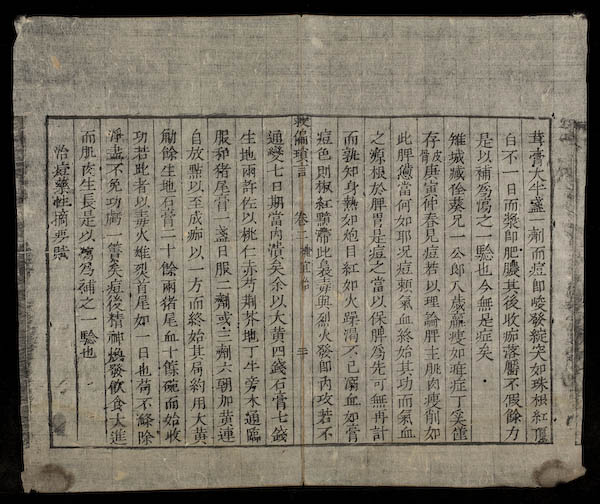 茸膏大半盞一劑而痘即崚發綻突如珠根紅頂
白不一日而漿即肥膿其後收痂落靨不假餘方
是以補為瀉之一驗也今無是症矣
雉城臧存皮庚寅仲春見痘若以理論脾主肌肉瘦削如
此脾憊當何如耶况痘賴氣血終始其功而氣血
之源根於脾胃是痘之當以保脾為先可無再計
而孰知身熱如炮目紅如火躁渴不已瀉血如膏
痘色則椒紅點滯此裊毒與烈火發即內攻若不
救偏瑣言 卷二
通變七日期當內潰矣余以大黃四錢石膏七錢
生地兩許佐以桃仁赤芍荊芥地丁牛旁木通臨
服和猪尾膏一盞日服二劑或三劑六朝加黃連
自放點以至成痂以一方而終始其局約用大黃
觔餘生地石膏二十餘兩猪尾血十餘碗而始收
功若此者以毒火雄烈首尾如一日也苟不滌除
淨盡不免功虧一簣矣痘後精神煥發飲食大進
而肌肉生長是以瀉為補之一驗也
治痘藥性摘要賦